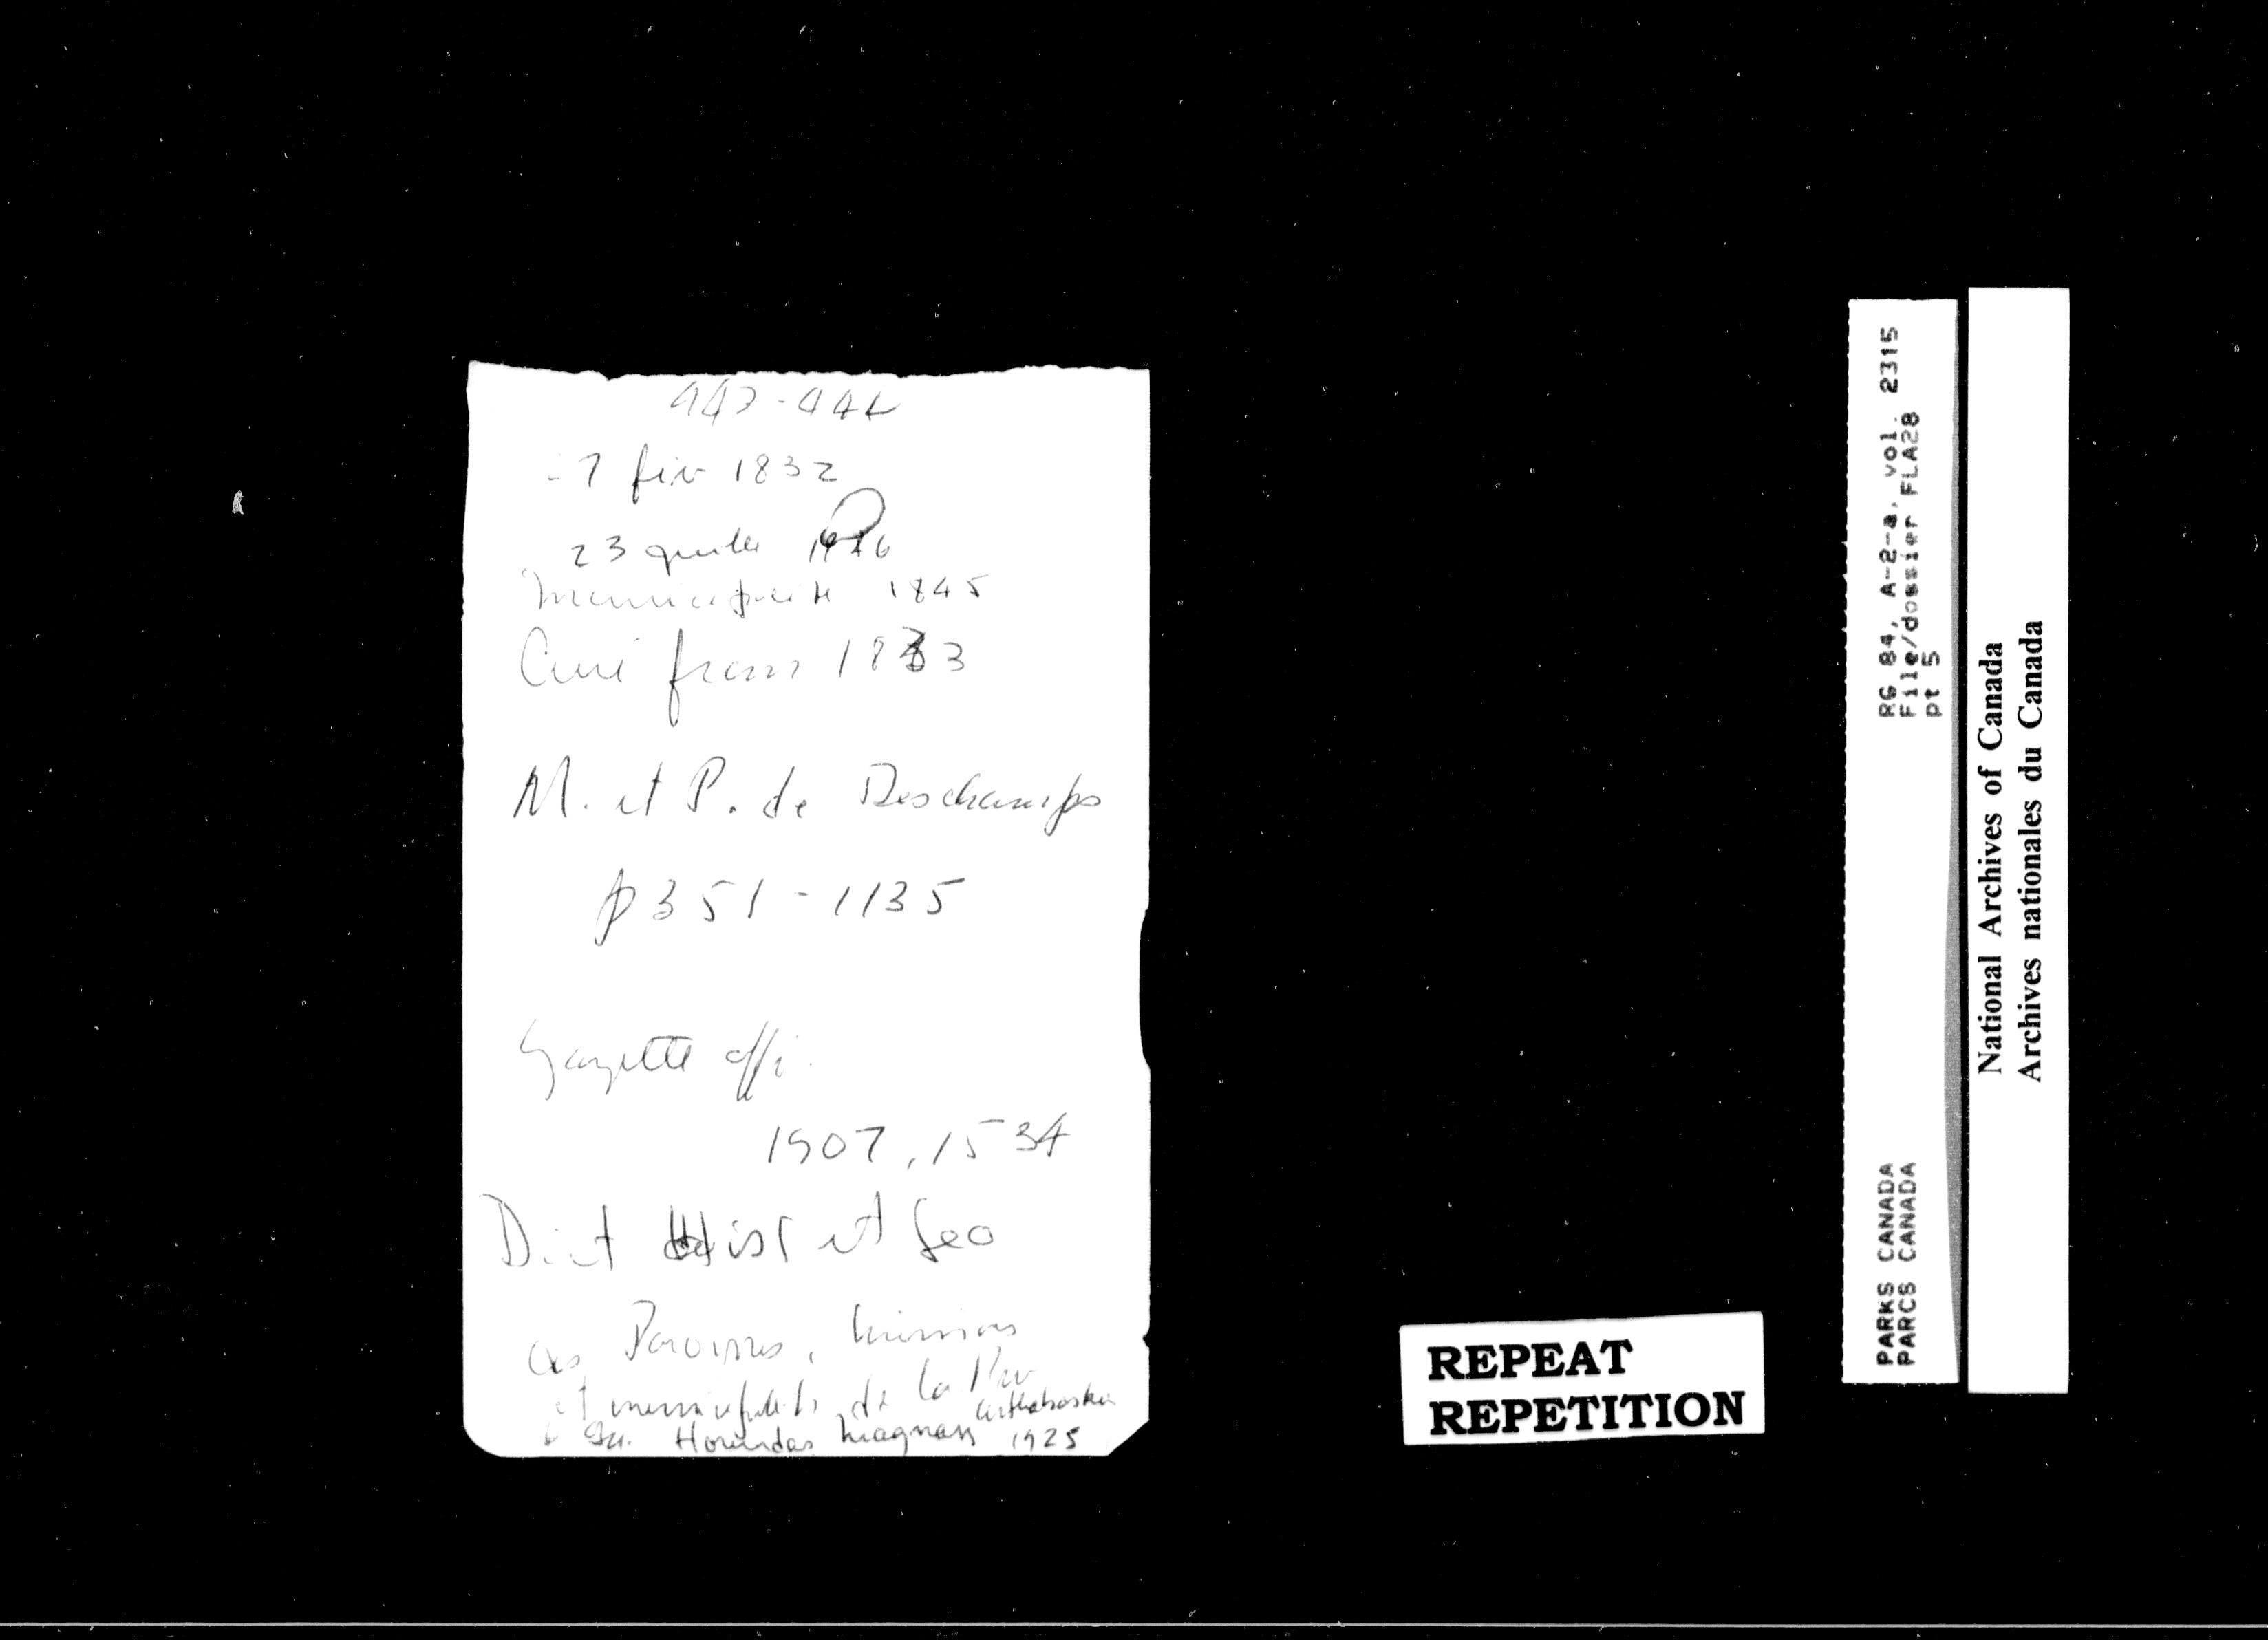 443-444
7 fév 1832
23 juillet
Municipalité 1845
Curé from 1833
M. et P. de Deschamps
p 351 - 1135
Gazette offi.
1907, 1534
Dict Hist et Geo
des Paroisses, missions
et municipalités de la Prov
Arthabaska
Hormidas Magnan 1925
REPEAT
REPETITION
RG 84, A-2-a, vol. 2315
File/dossier FLA28
pt 5
PARKS CANADA
PARCS CANADA
National Archives of Canada
Archives nationales du Canada